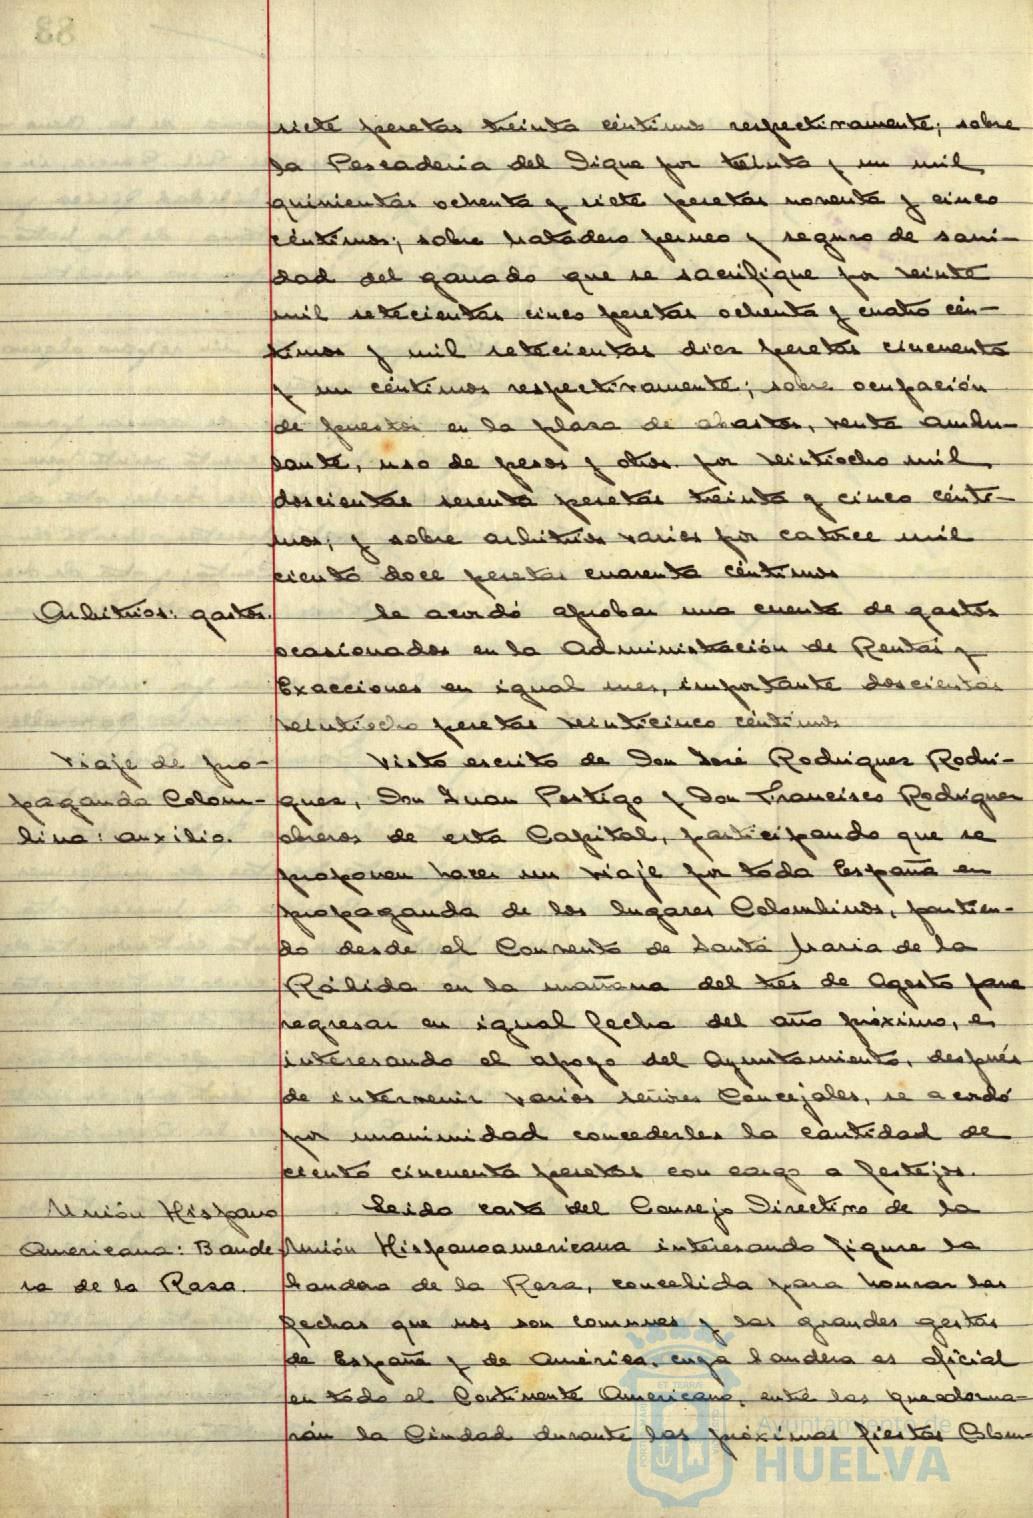 siete pesetas treinta céntimos respectivamente; sobre
la Pescaderia del Dique por treinta y un mil
quinientas ochenta y siete pesetas noventa y cinco
céntimos; sobre matadero perneo y seguro de sani-
dad del ganado que se sacrifique por veinte
mil setecientas cinco pesetas ochenta y cuatro cén-
timos y mil setecientas diez pesetas cincuenta
y un céntimos respectivamente; sobre ocupación
de puestos en la plaza de abastos, venta ambu-
lante, uso de pesos y otros por veintiocho mil
doscientas sesenta pesetas treinta y cinco cénti-
mos; y sobre arbitrios varios por catorce mil
ciento doce pesetas cuarenta céntimos
Arbitrios: gastos.
Se acordó aprobar una cuenta de gastos
ocasionados en la Administración de Rentas y
Exacciones en igual mes, importante doscientas
veintiocho pesetas veinticinco céntimos
Viaje de pro-
paganda Colom-
bina: auxilio.
Visto escrito de Don José Rodriguez Rodri-
guez, Don Juan Postigo y Don Francisco Rodriguez
obreros de esta Capital, participando que se
proponen hacer un viaje por toda España en
propaganda de los lugares Colombinos, partien-
do desde el Convento de Santa Maria de la
Rábida en la mañana del tres de Agosto para
regresar en igual fecha del año próximo, e
interesando el apoyo del Ayuntamiento, después
de intervenir varios señores Concejales, se acordó
por unanimidad concederles la cantidad de
ciento cincuenta pesetas con cargo a festejos.
Unión Hispano
Americana: Bande
ra de la Raza.
Leida carta del Consejo Directivo de la
Unión Hispanoamericana interesando figure la
bandera de la Raza, concebida para honrar las
fechas que nos son comunes y las grandes gestas
de España y de América, cuya bandera es oficial
en todo el Continente Americano, entre las que adorna-
rán la Ciudad durante las próximas fiestas Colom-
Ayuntamiento de
HUELVA